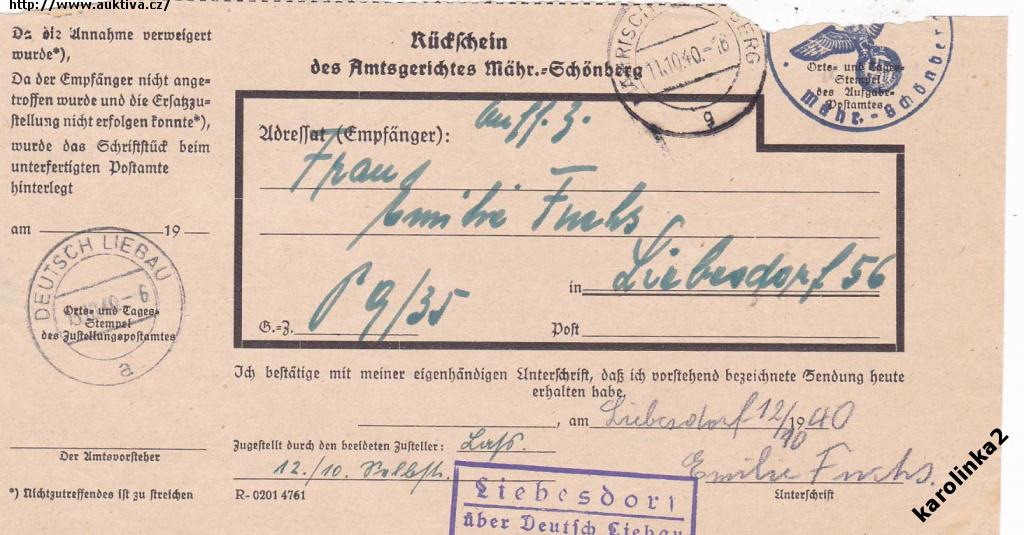 http://www.auktiva.cz/
Da die Annahme verweigert
wurde*),
Da der Empfänger nicht ange-
troffen wurde und die Ersatzzu-
stellung nicht erfolgen konnte*),
wurde das Schriftstück beim
unterfertigten Postamte
hinterlegt
am 19
DEUTSCH LIEBAU
40-6
a
Orts- und Tages-
Stempel
des Zustellungspostamtes
Der Amtsvorsteher
*) Nichtzutreffendes ist zu streichen
Rückschein
des Amtsgerichtes Mähr.-Schönberg
11.10.40.-16
b
Orts- und Tages-
Stempel
des Aufgabe-
Postamtes
Mähr.-Schönberg
Adressat (Empfänger):
Frau
Emilie Fuchs
in Liebesdorf 56
G.-Z. P 9/35
Post
Ich bestätige mit meiner eigenhändigen Unterschrift, daß ich vorstehend bezeichnete Sendung heute
erhalten habe.
, am Liebesdorf 12/10 1940
Zugestellt durch den beeideten Zusteller:
12./10.
Emilie Fuchs.
Unterschrift
R- 0201 4761
Liebesdorf
über Deutsch Liebau
karolinka2